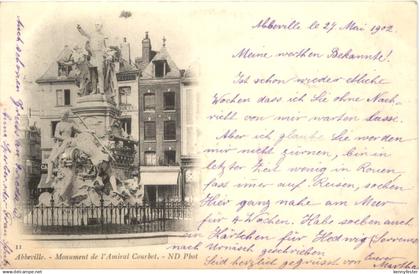 Abbeville le 27 Mai 1902.
Meine werthen Bekannte!
Ist schon wieder etliche
Wochen dass ich Sie ohne Nach-
richt von mir warten lasse.
Aber ich glaube Sie werden
mir nicht zürnen, bin in
letzter Zeit wenig in Rouen
fast immer auf Reisen, sochen
Hier ganz nahe am Meer
für 4 Wochen. Habe soeben auch
ein Kärtchen für Hedwig
nach geschickt
Seid herzlich gegrüsst von Euer
Martha
Auch schönen Gruss an
11
Abbeville. - Monument de l'Amiral Courbet. - ND Phot